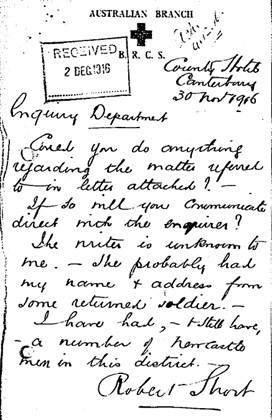 AUSTRALIAN BRANCH
B. R. C. S.
RECEIVED
2 DEC. 1916
County Hotel
Canterbury
30 Nov 1916
Enquiry Department
Could you do anything
regarding the matter referred
to in letter attached? -
If so will you communicate
direct with the enquirer?
The writer is unknown to
me. - She probably had
my name & address from
some returned soldier. -
I have had, - & still have,
- a number of Newcastle
men in this district. -
Robert Short